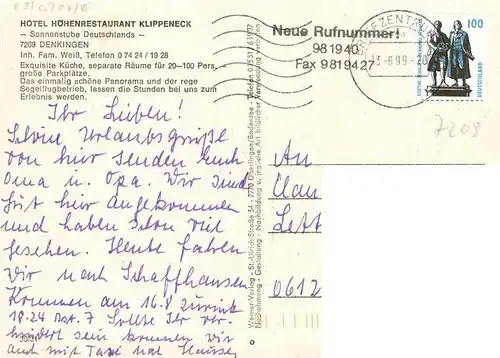 HOTEL HÖHENRESTAURANT KLIPPENECK
— Sonnenstube Deutschlands —
7209 DENKINGEN
Inh. Fam. Weiß, Telefon 0 74 24 / 19 28
Exquisite Küche, separate Räume für 20—100 Pers.,
große Parkplätze.
Das einmalig schöne Panorama und der rege
Segelflugbetrieb, lassen die Stunden bei uns zum
Erlebnis werden.
Ihr Lieben!
Schöne Urlaubsgrüße
von hier senden Euch
Oma u. Opa. Wir sind
gut hier angekommen
und haben schon viel
gesehen. Heute fahren
wir nach Schaffhausen
Kommen am 16.8 zurück
18.24 Sollte Ihr ver-
hindert sein kommen wir
auch mit Taxi nach Hause
Werner-Verlag - St.-Ulrich-Straße 54 - 7770 Überlingen/Bodensee - Telefon
Nachahmung - Gestaltung - Nachbildung u. jegliche Art bildlicher Verwendung verboten
Neue Rufnummer!
981940
Fax 9819427
BRIEFZENTRUM
-3-8.99-20
100
DEUTSCHLAND
7208
An
Lett
0612